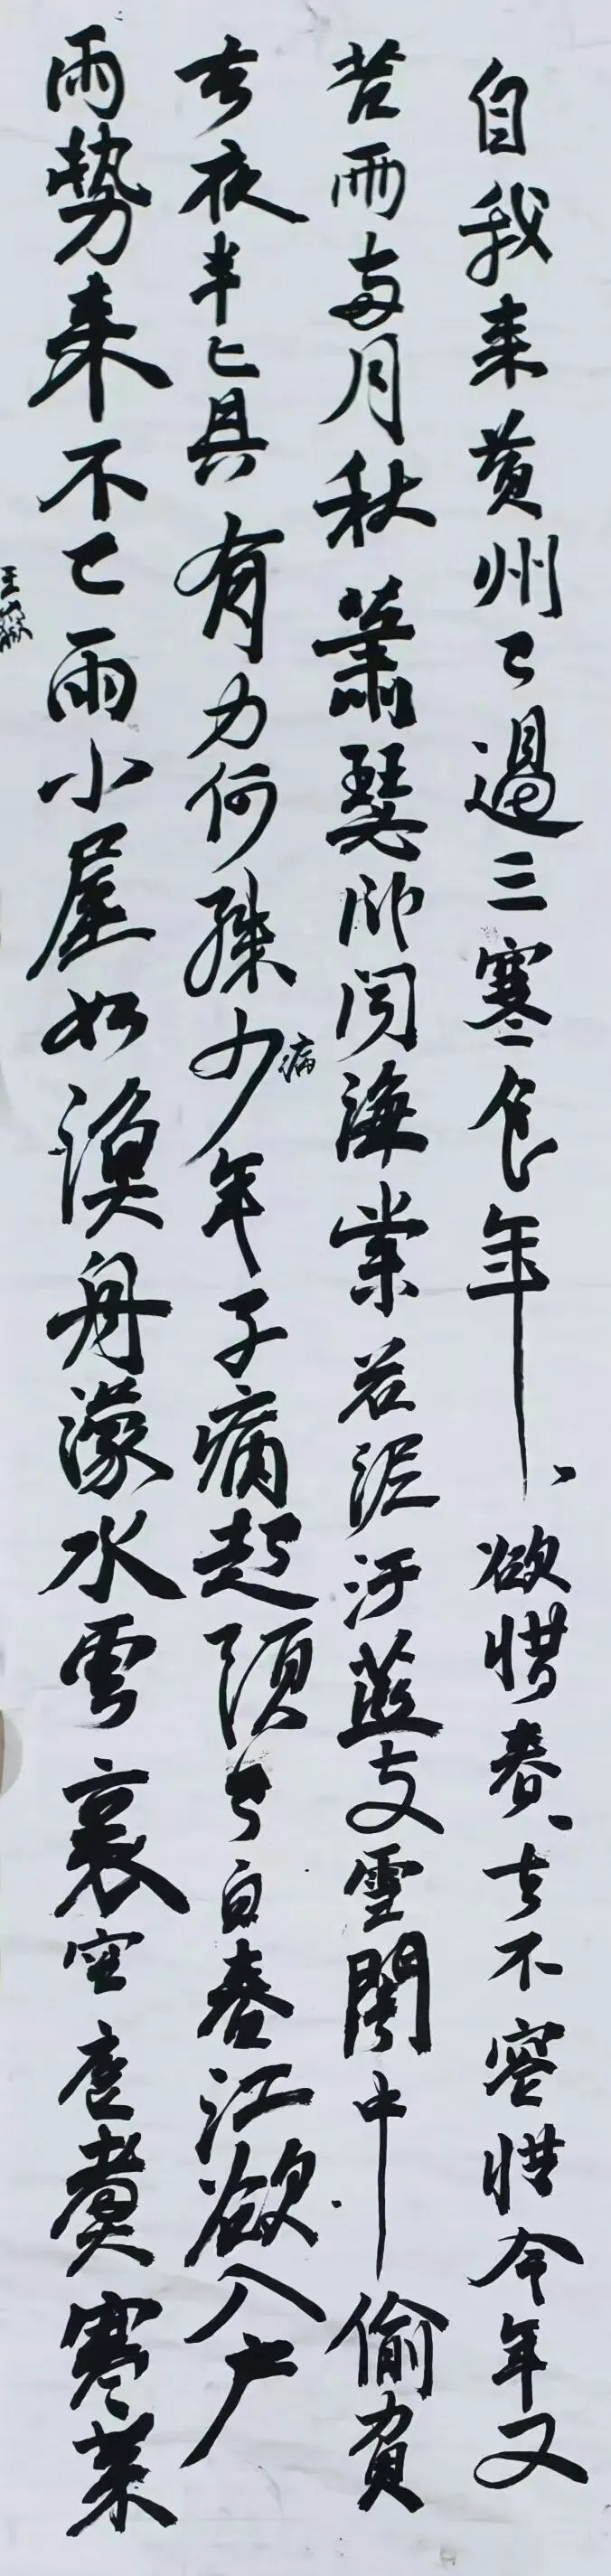 自我来黄州已過三寒食年、欲惜春、去不容惜今年又
苦雨兩月秋蕭瑟卧聞海棠花泥汙燕支雪闇中偷負
去夜半真有力何殊少病年子病起頭已白春江欲入戶
雨勢来不已雨小屋如漁舟濛水雲裏空庖煮寒菜